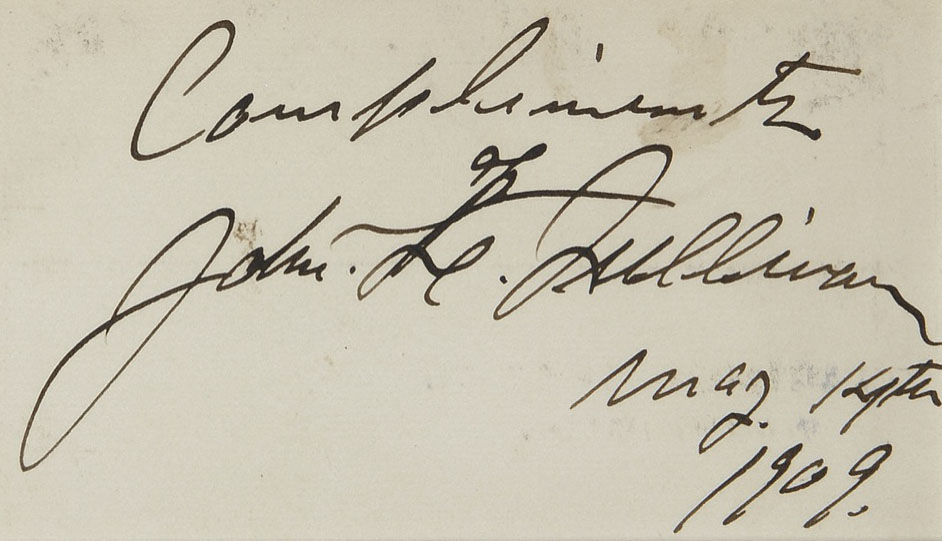 Compliments
of
John. L. Sullivan
May. 14th
1909.